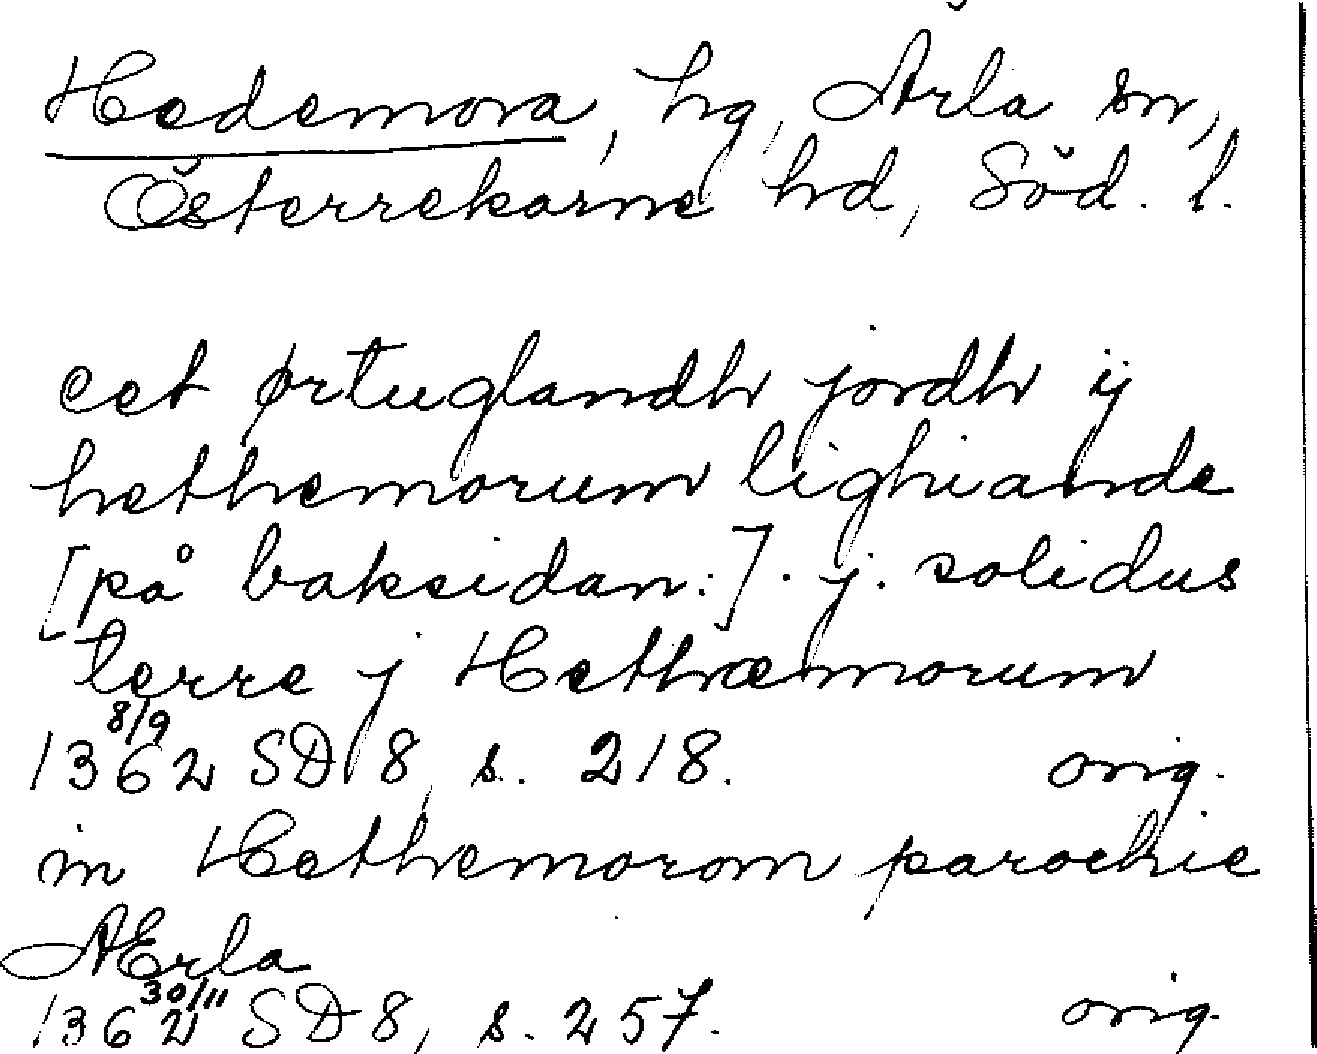 Hedemora, hg, Ärla sn,
Österrekarne hd, Söd. l.
eet ørtuglandh jordh ij
hethemorum lighiande
[på baksidan:]. j. solidus
terre j Hethæmorum
1362 8/9 SD 8, s. 218. orig.
in Hethemorom parochie
AErla
1362 30/11 SD 8, s. 257. orig.